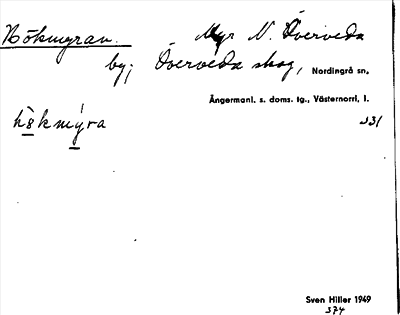 Hökmyran. Myr N. Överveda
by; Överveda skog, Nordingrå sn,
Ångermanl. s. doms. tg., Västernorrl. l.
hökmýra 331
Sven Hiller 1949
374